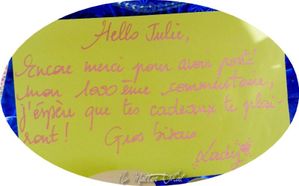 Hello Julie,
Encore merci pour avoir posté
mon 1000ème commentaire,
j'éspère que tes cadeaux te plai-
ront!
Gros bisous